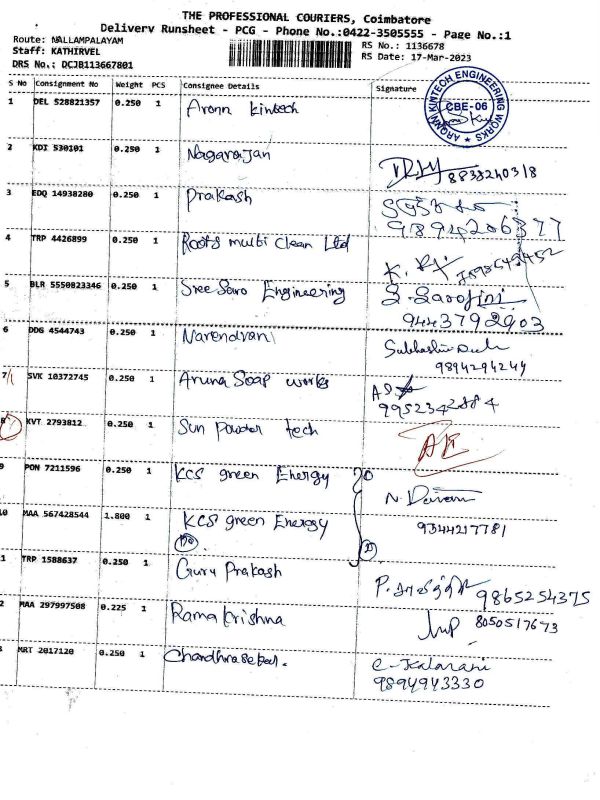 THE PROFESSIONAL COURIERS, Coimbatore
Delivery Runsheet - PCG - Phone No.:0422-3505555 - Page No.:1
Route: NALLAMPALAYAM
RS No.: 1136678
Staff: KATHIRVEL
RS Date: 17-Mar-2023
DRS No.: DCJB113667801
S No Consignment No Weight PCS Consignee Details Signature
ARONN KINTECH ENGINEERING WORKS
CBE-06
1 DEL 528821357 0.250 1 Aronn kintech
2 KDI 530101 0.250 1 Nagarajan
8833240318
3 EDQ 14938280 0.250 1 Prakash
9894206377
4 TRP 4426899 0.250 1 Roots multi Clean Ltd
5 BLR 5550823346 0.250 1 Sree Saro Engineering S. Sarojini
9443792903
6 DDG 4544743 0.250 1 Narendran
9894294249
7 SVK 10372745 0.250 1 Aruna Soap works
9952342884
8 KVT 2793812 0.250 1 Sun Powder tech
9 PON 7211596 0.250 1 KCS green Energy
10 MAA 567428544 1.800 1 KCS green Energy 9344217781
1 TRP 1588637 0.250 1 Guru Prakash
9865254375
2 MAA 297997508 0.225 1 Rama krishna 8050517673
3 MRT 2017120 0.250 1 Chandhrasekar.
9894943330